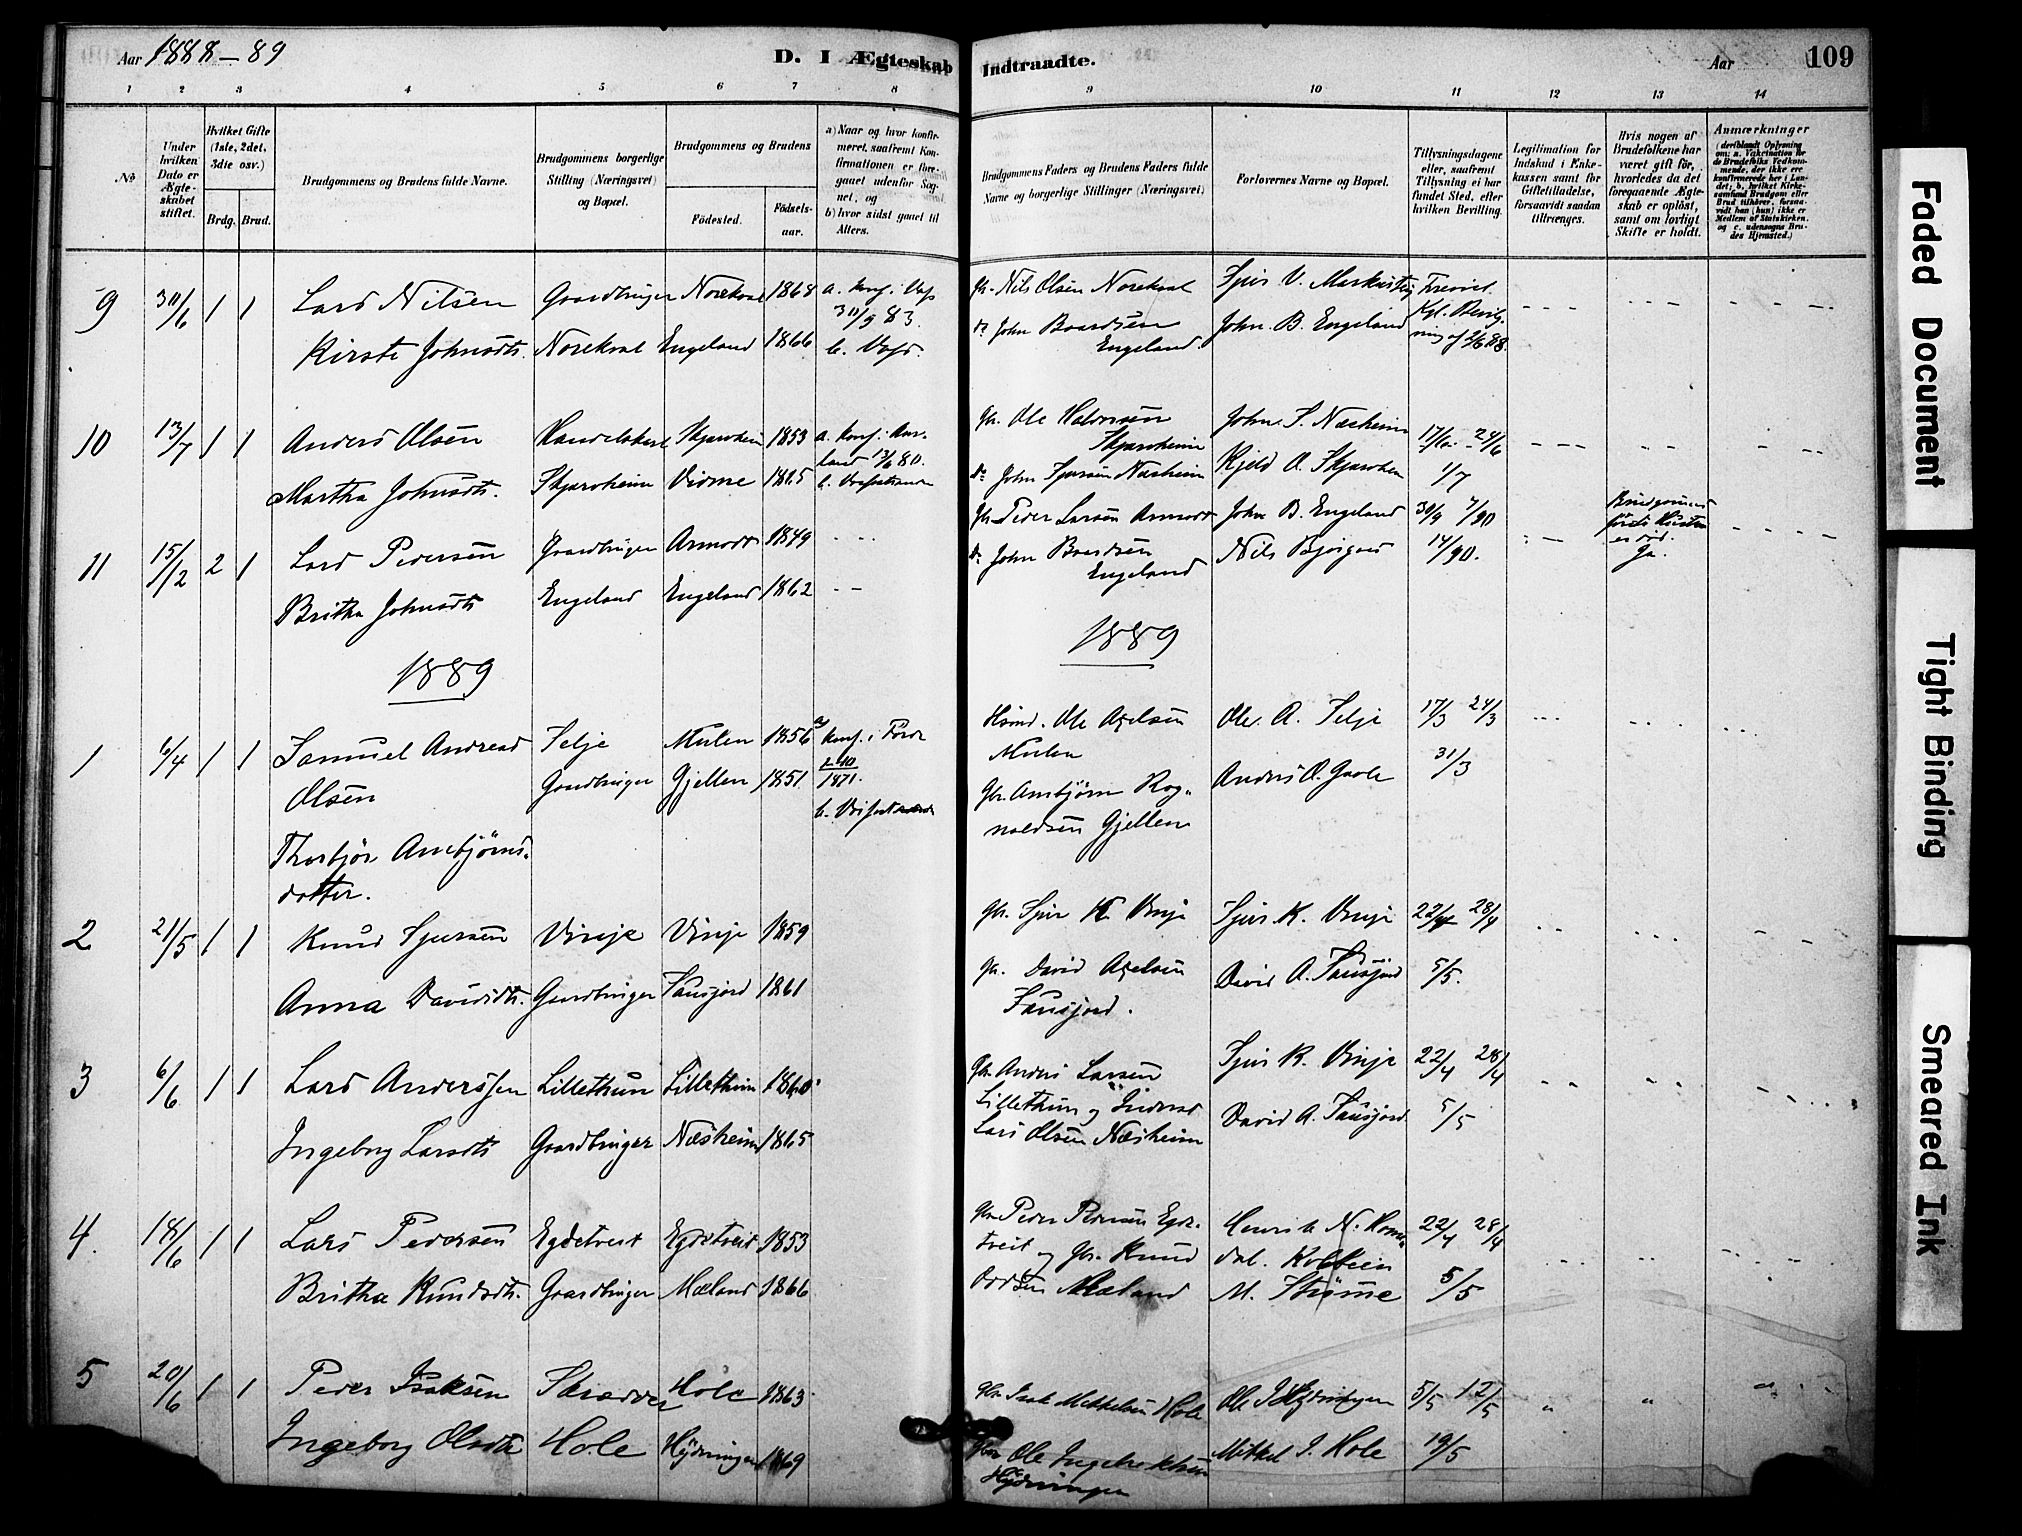 Aar 1888-89
D. I Ægteskab Indtraadte.
Aar 109
1 2 3 4 5 6 7 8 9 10 11 12 13 14
No
Under hvilken Dato er Ægteskabet stiftet.
Hvilket Gifte (1ste, 2det, 3die osv.)
Brdg. Brud.
Brudgommens og Brudens fulde Navne.
Brudgommens borgerlige Stilling (Næringsvei) og Bopæl.
Brudgommens og Brudens
Fødested.
Fødsels-aar.
a) Naar og hvor konfirmeret, saafremt Konfirmationen er foregaaet udenfor Sognet, og
b) hvor sidst gaaet til Alters.
Brudgommens Faders og Brudens Faders fulde Navne og borgerlige Stillinger (Næringsvei)
Forlovernes Navne og Bopæl.
Tillysningsdagene eller, saafremt Tillysning ei har fundet Sted, efter hvilken Bevilling.
Legitimation for Indskud i Enkekassen samt for Giftetilladelse, forsaavidt saadan tiltrænges.
Hvis nogen af Brudefolkene har været gift før, hvorledes da det foregaaende Ægteskab er opløst, samt om lovligt Skifte er holdt.
Anmærkninger (deriblandt Oplysning om: a. Vakcination for de Brudefolks Vedkommende, der ikke ere konfirmerede her i Landet; b. hvilket Kirkesamfund Brudgom eller Brud tilhører, forsaavidt han (hun) ikke er Medlem af Statskirken, og c. udensogns Brudes Hjemsted.)
9 30/6 1 1 Lars Nilsen Gaardbruger Norekval 1868 a. konf. i
30/9 83.
Gbr. Nils Olsen Norekval
Kirsti Johnsdtr. Norekval Engeland 1866 b.
Do John Baardsen Engeland John B. Engeland
10 13/7 1 1 Anders Olsen Skjærvheim 1853 a. konf. i Aurland
Gbr. Ole Skjærvheim John S. Næsheim 17/6 24/6
Martha Johnsdtr. Skjærvheim Vinme 1865 b.
Do John Sjursen Næsheim Kjeld O. 1/7
11 15/12 2 1 Lars Pedersen Gaardbruger Armodt 1849
Gbr. Peder Larsen Armodt John B. Engeland 30/9 7/90
Brudgommens første Hustru er død. Ja.
Britha Johnsdtr Engeland Engeland 1862
Do John Baardsen Engeland Nils 14/90.
1889
1889
1 6/4 1 1 Samuel Andreas Olsen Selje Mulen 1856 a) konf. i Førde
1871.
Ole Axelsen Mulen Ole A. Selje 17/3 24/3
Gaardbruger Gjellen 1851
b.
Gbr. Arnbjørn Rognaldsen Gjellen Anders O. 31/3
Thorbjør Arnbjørnsdotter.
2 21/5 1 1 Knud Sjursen Vinje Vinje 1859
Gbr. Sjur K. Vinje Sjur K. Vinje 22/4 28/4
Anna Davidsdtr. Gaardbruger Sausjord 1861
Gbr. David Axelsen Sausjord. David A. Sausjord 5/5.
3 6/6 1 1 Lars Anderssen Lillethun Lillethun 1860
Gbr. Anders Larsen Lillethun og Sjur K. Vinje 22/4 28/4
Ingeborg Larsdtr Gaardbruger Næsheim 1865
Lars Olsen Næsheim David A. Sausjord 5/5
4. 18/6 1 1 Lars Pedersen Egdetveit Egdetveit 1853
Gbr. Peder Pedersen Egdetveit og Gbr. Knud Henrik N. 22/4 28/4
Britha Knudsdtr. Gaardbruger Mæland 1866
Mæland Kolbein M. Strøme 5/5
5 20/6 1 1 Peder Isaksen Skrædder Hole 1863
Gbr. Isak Mikkelsen Hole Ole I. Hydningen 5/5 12/5
Ingeborg Olsdtr Hole Hydningen 1869
Gbr. Ole Ingebrektsen Hydningen Mikkel I. Hole 19/5
Faded Document
Tight Binding
Smeared Ink